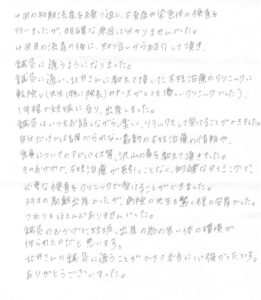 4回の初期流産を繰り返し、不育症や染色体の検査を
行いましたが、明確な原因は分かりませんでした。
4回目の流産の後に、知り合いから紹介して頂き、
鍼灸に通うようになりました。
鍼灸に通い、辻井さんに教えて頂いた不妊治療のクリニックに
転院し(先生（特に院長）やナースがとても優しいクリニックでした)、
1年程で妊娠に至り、出産しました。
鍼灸はいつもお話しながら、楽しい、リラックスして受けることができました。
自分だけでは調べられない最新の不妊治療の情報や、
食事についてのアドバイス等、沢山の事を教えて頂きました。
そのおかげか、不妊治療が長引くことなく、的確なタイミングで、
必要な検査をクリニックで受けることができました。
39才の高齢出産でしたが、病院の先生も驚く程の安産でした。
つわりもほとんどありませんでした。
鍼灸のおかげで妊娠、出産の為の良い体の環境が
作られたのだと思います。
辻井さんの鍼灸に通うことができて本当にいい機会だったです。
ありがとうございました。